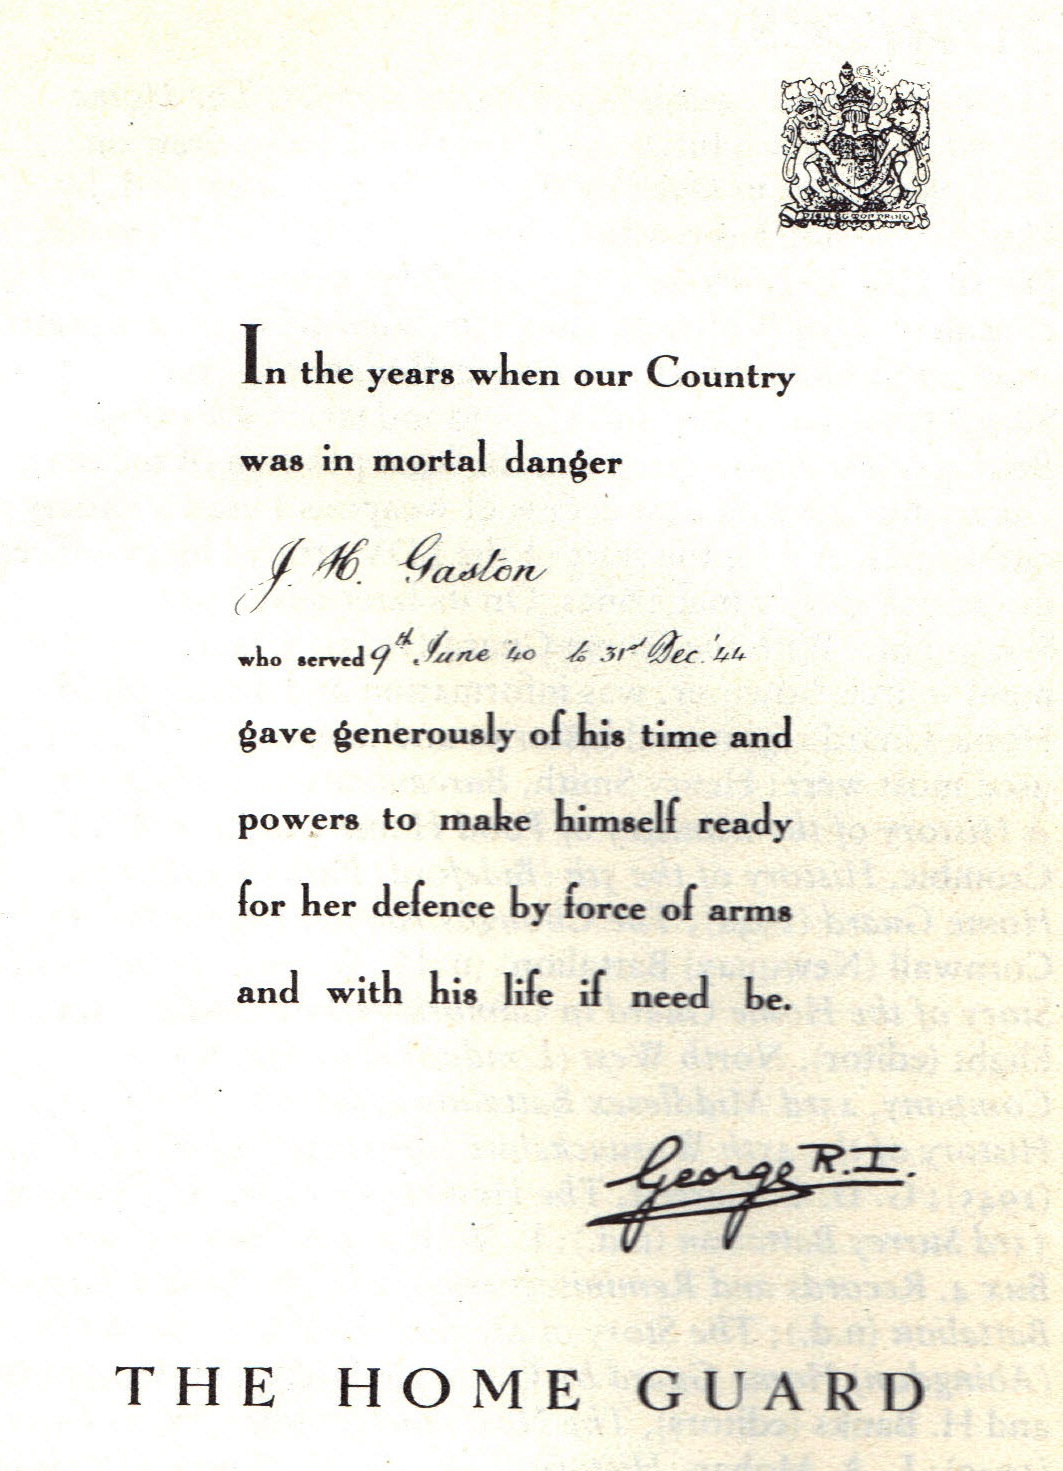 In the years when our Country
was in mortal danger
J. H. Gaston
who served 9th June '40 to 31st Dec. '44
gave generously of his time and
powers to make himself ready
for her defence by force of arms
and with his life if need be.
George R.I.
THE HOME GUARD